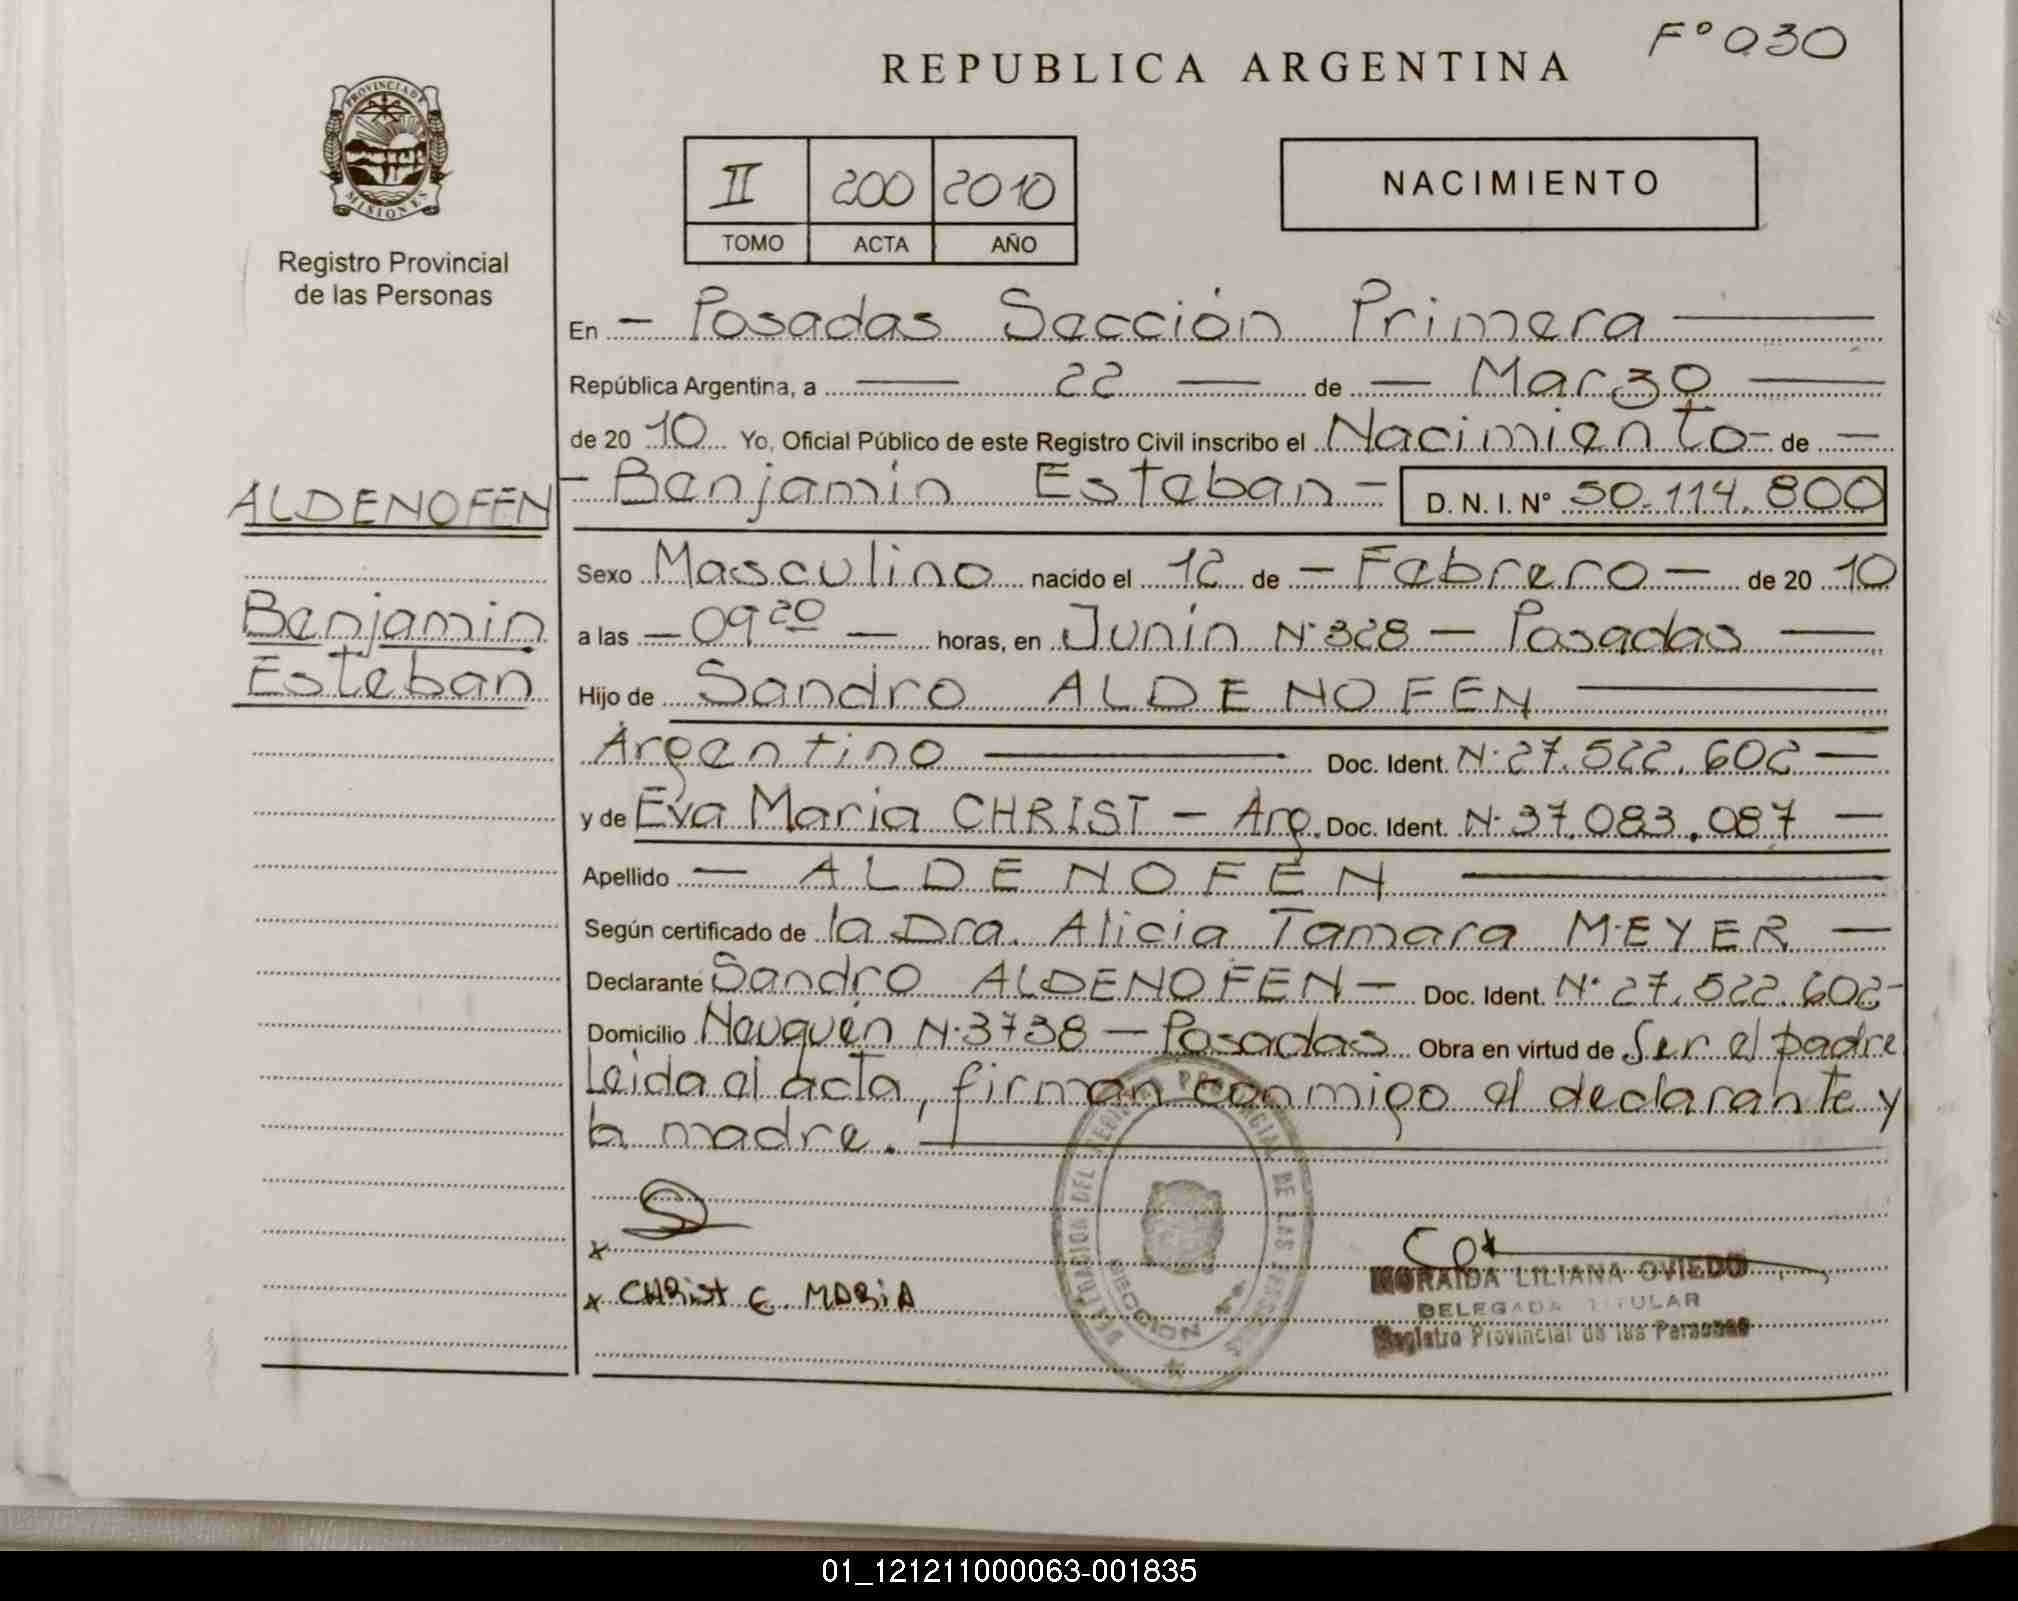 F° 030
REPUBLICA ARGENTINA
PROVINCIA DE
MISIONES
Registro Provincial
de las Personas
II 200 2010
TOMO ACTA AÑO
NACIMIENTO
En - Posadas Sección Primera
República Argentina, a 22 de Marzo
de 20 10 Yo, Oficial Público de este Registro Civil inscribo el Nacimiento - de
- Benjamín Esteban - D. N. I. N° 50.114.800
ALDENOFEN
Benjamin
Esteban
Sexo Masculino nacido el 12 de - Febrero - de 20 10
a las - 09 20 - horas, en Junín N° 328 - Posadas
Hijo de Sandro ALDENOFEN
Argentino Doc. Ident. N° 27.522.602
y de Eva Maria CHRIST - Arg. Doc. Ident. N° 37.083.087
Apellido - ALDENOFEN
Según certificado de la Dra. Alicia Tamara MEYER
Declarante Sandro ALDENOFEN - Doc. Ident. N° 27.522.602
Domicilio Neuquén N° 3738 - Posadas Obra en virtud de Ser el padre
Leida el acta, firman conmigo el declarante y
la madre.
x
x CHRist E MARiA
PROVINCIAL DE LAS
LILIANA OVIEDO
DELEGADA TITULAR
Registro Provincial de las Personas
01_121211000063-001835